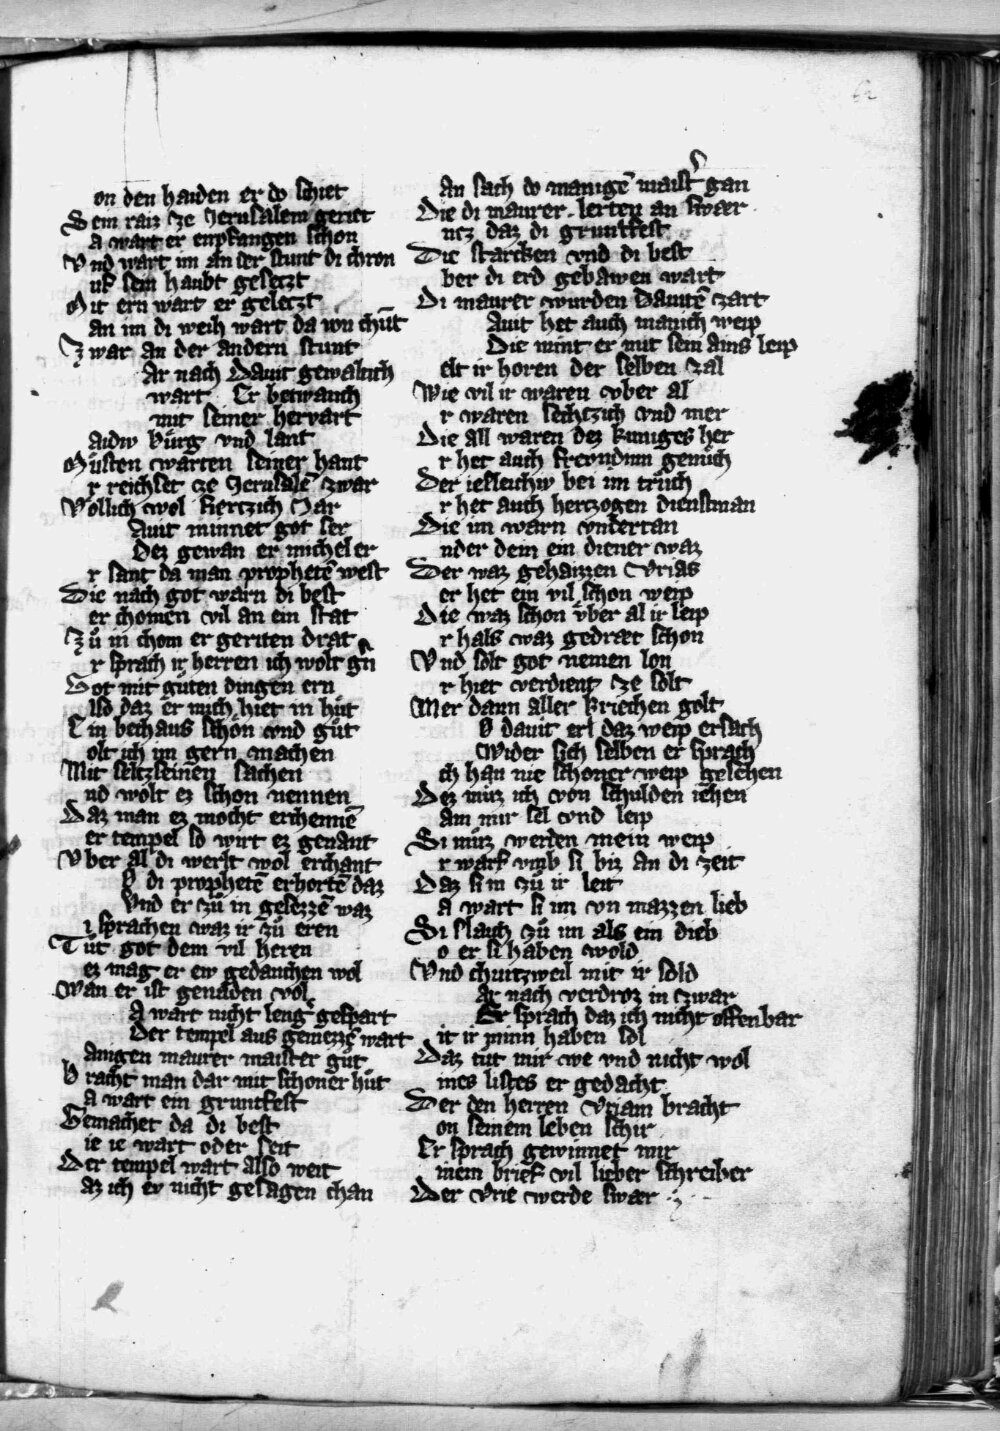 on den haiden er do schiet
Sein raiz cze Jerusalem geriet
a wart er enpfangen schon
Vnd wart im an der stunt di chron
uf sein haubt geseczt
Mit ern wart er geleczt
an im di weih wart da von chūt
Zwar an der andern stunt
Ar nach Dauit gewaltich
wart Er betwanch
mit seiner hervart
aidiv bürg vnd lant
Müsten warten seiner hant
r reichset cze Jerusalē zwar
Vollich wol fiertzich Jar
Auit minnet got ser
Dez gewan er michel er
r sant da man prophetē west
Die nach got warn di best
er chomen vil an ein stat
Zů in chom er geriten drat
r sprach ir herren ich wolt gn̄
Got mit gůten dingen ern
Uso daz er mich hiet in hůt
Ein bethaus schön vnd gůt
olt ich im gern machen
Mit seltzseinen sachen
nd wolt ez schon nennen
Daz man ez mocht erchennē
er tempel so wirt ez genant
Vber al di werlt wol erchant
O di prophetē erhortē daz
Vnd er zů in gesezzē waz
i sprachen waz ir zů eren
Tůt got dem vil heren
ez mag er ew gedanchen wol
Wan er ist genaden vol
A wart nicht lenḡ gespart
Der tempel aus gemezzē wart
anigen maurer maister gůt
B racht man dar mit schoner hůt
a wart ein gruntfest
Gemachet da di best
ie ie wart oder seit
Der tempel wart also weit
az ich ev nicht gesagen chan
An sach do manigē maist̄ gan
Die di maurer lerten an swær
ncz daz di gruntfest
Die starcken vnd di best
ber di erd gebawen wart
Di maurer wurden Dauitē zart
Auit het auch manich weip
Die mint er mit sein ains leip
elt ir horen der selben zal
Wie vil ir waren vber al
r waren sechtzich vnd mer
Die all waren dez kuniges her
r het auch frevndinn genůch
Der iesleichiv bei im trůch
r het auch hertzogen dienstman
Die im warn vndertan
nder dem ein diener waz
Der waz gehaizzen Vrias
er het ein vil schon weip
Die waz schon vber al ir leip
r hals waz gedræt schon
Vnd solt got nemen lon
r hiet verdient ze solt
Mer dann aller kriechen golt
O dauit erst daz weip ersach
Wider sich selben er sprach
ch han nie schoner weip gesehen
Dez můz ich von schulden iehen
am mir sel vnd leip
Si můz werden mein weip
r warf vmb si biz an di zeit
Daz si in zů ir leit
a wart si im vn mazzen lieb
Si slaich zů im als ein dieb
o er si haben wold
Vnd churtzweil mit ir sold
Ar nach verdroz in zwar
Er sprach daz ich nicht offenbar
it ir minn haben sol
Daz tut mir we vnd nicht wol
ines listes er gedacht
Der den herren Vriam bracht
on seinem leben schir
Er sprach gewinnet mir
inem brief vil lieber schreiber
Der Vrie werde swær